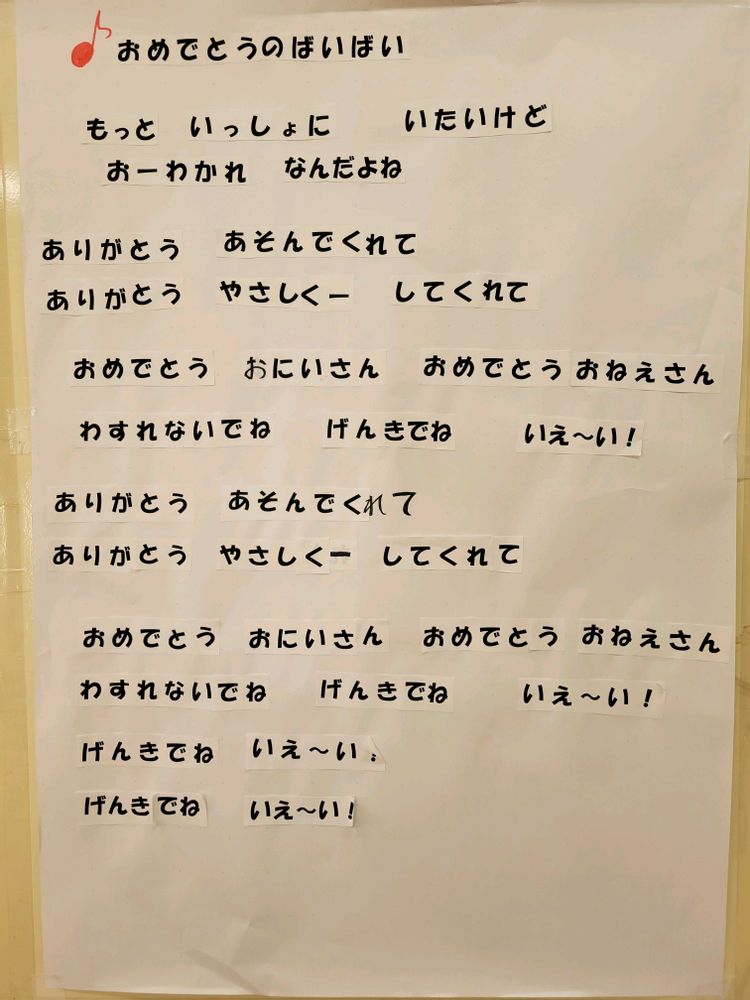 おめでとうのばいばい
もっと いっしょに いたいけど
おーわかれ なんだよね
ありがとう あそんでくれて
ありがとう やさしくー してくれて
おめでとう おにいさん おめでとう おねえさん
わすれないでね げんきでね いえ〜い！
ありがとう あそんでくれて
ありがとう やさしくー してくれて
おめでとう おにいさん おめでとう おねえさん
わすれないでね げんきでね いえ〜い！
げんきでね いえ〜い：
げんきでね いえ〜い！